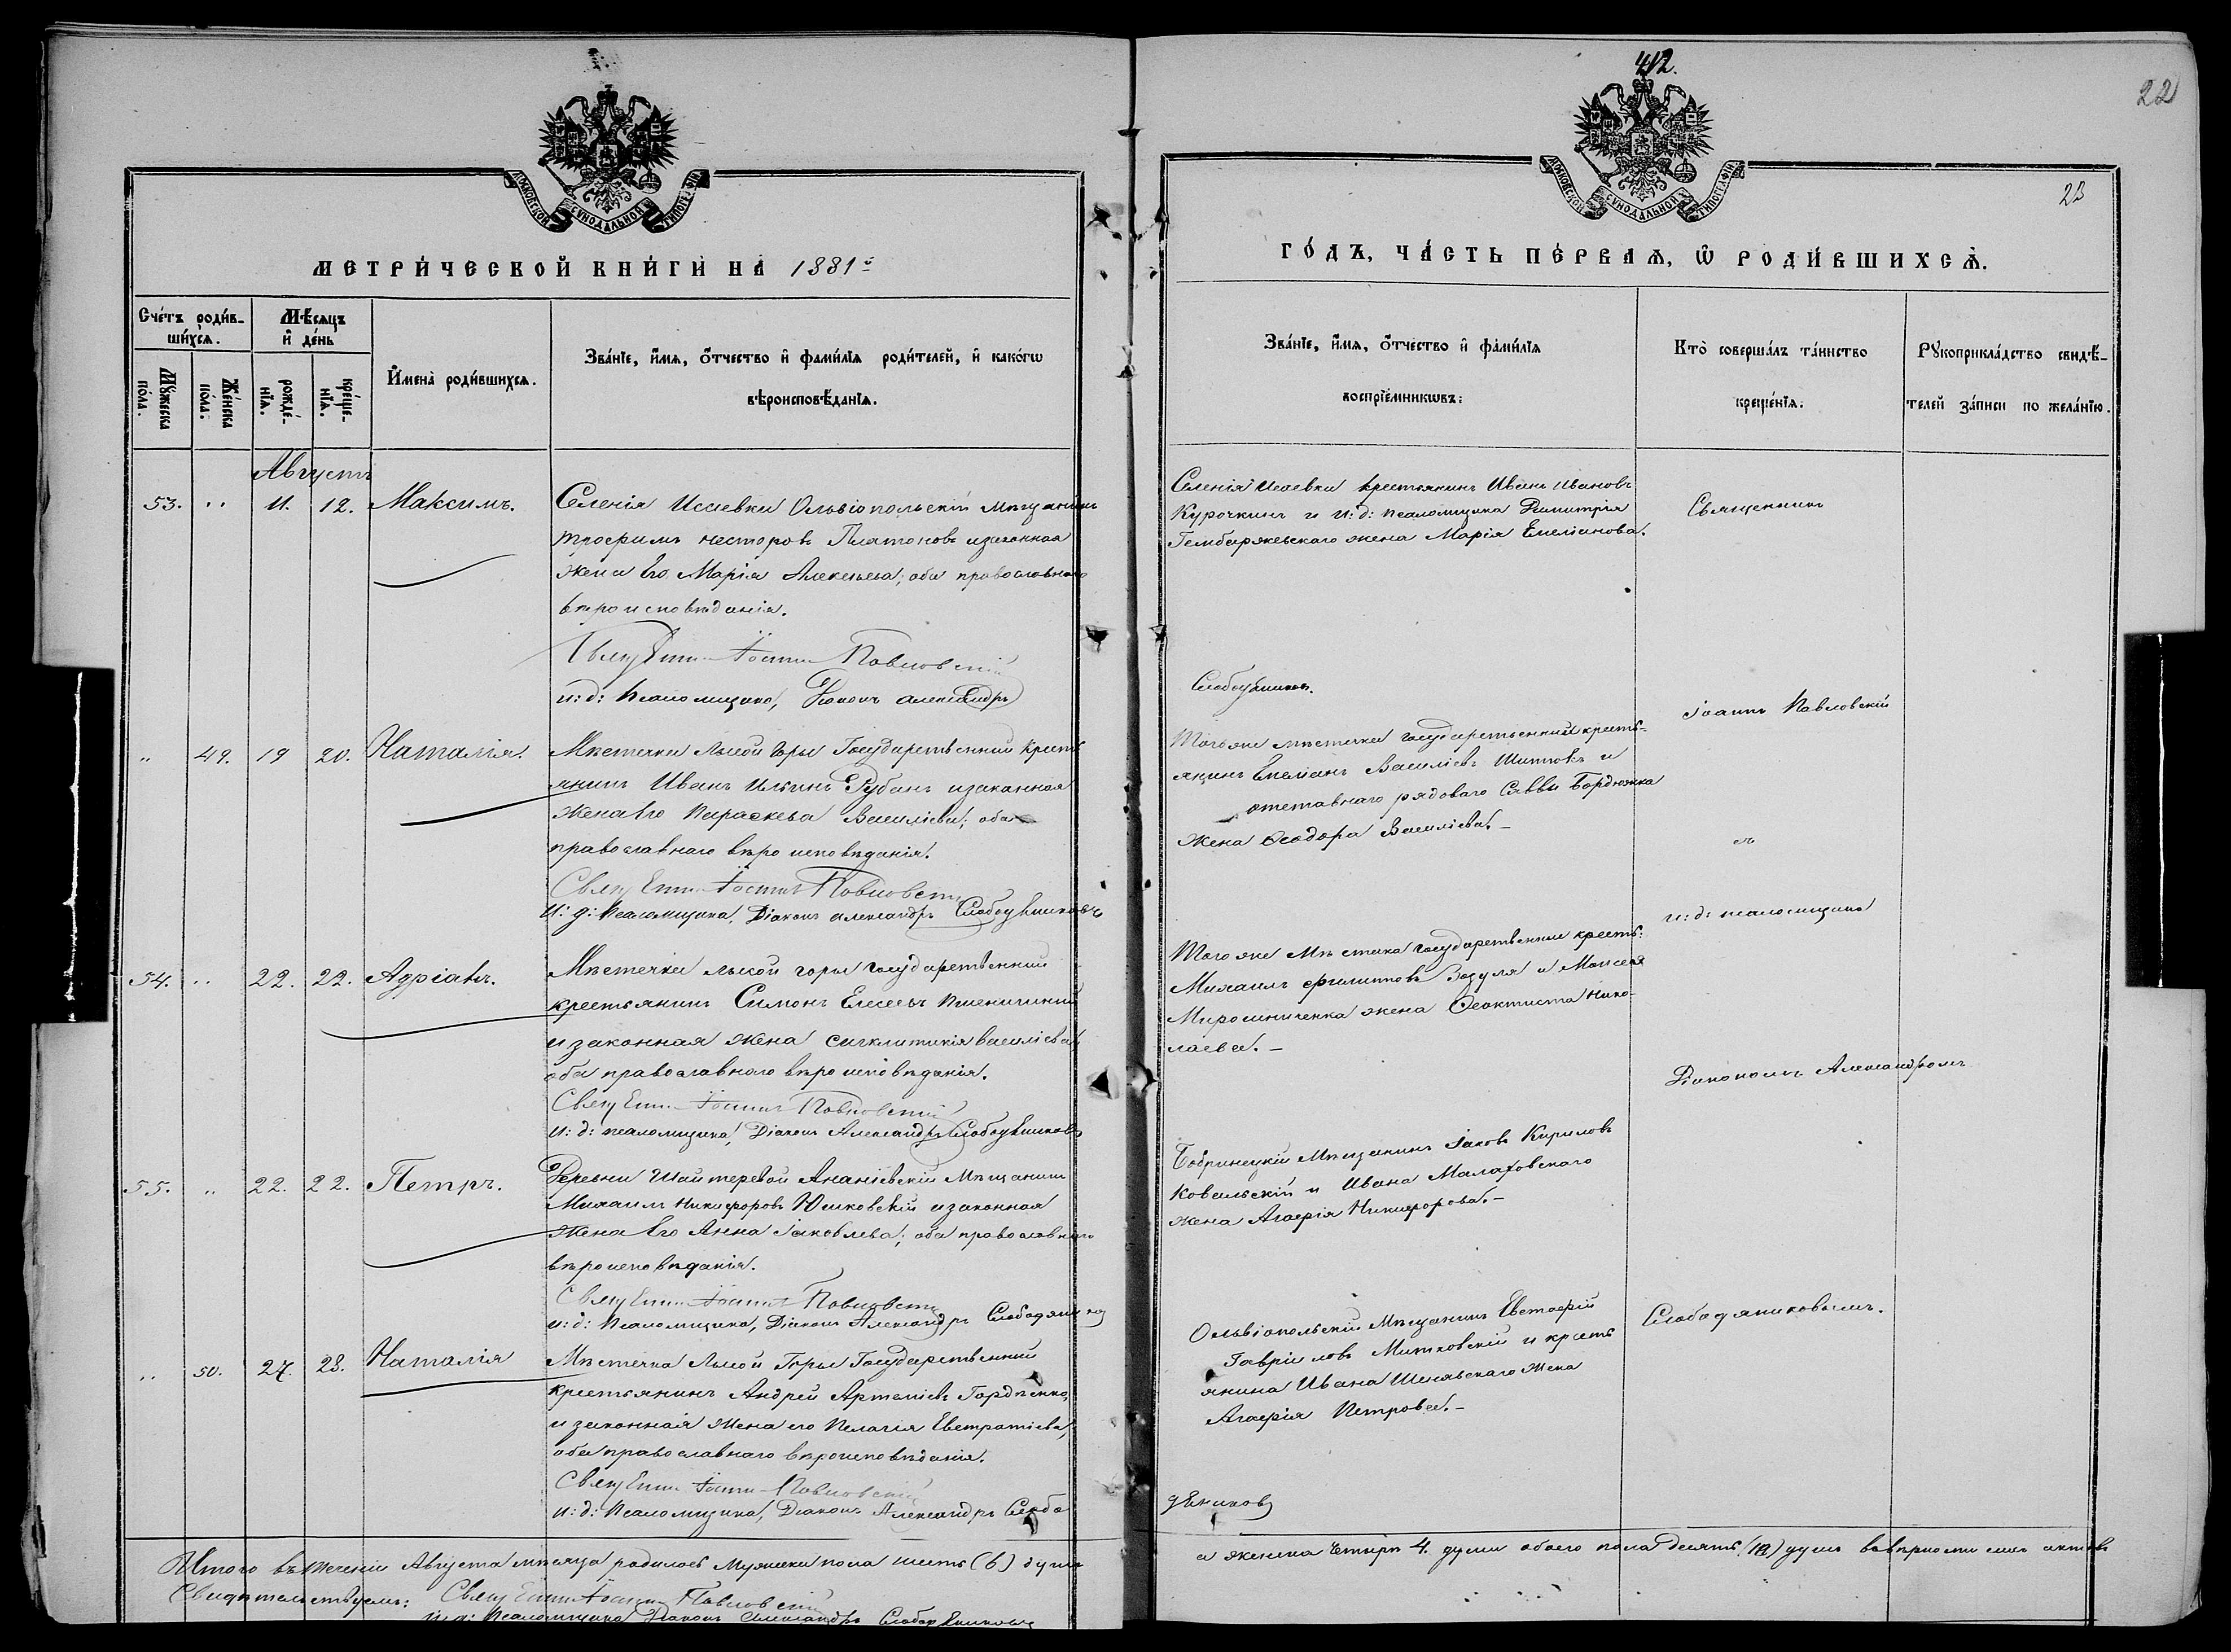 412.
22
22
МОСКОВСКОЙ СѴНОДАЛЬНОЙ ТИПОГРАФІИ
МОСКОВСКОЙ СѴНОДАЛЬНОЙ ТИПОГРАФІИ
МЕТРИ́ЧЕСКОЙ КНИ́ГИ НА̀ 1881й
ГО́ДЪ, ЧА́СТЬ ПЕ́РВАѦ, Ѡ҆ РОДИ́ВШИХСѦ.
Сче́тъ роди́в-
ши́хсѧ.
Мѣ́сѧцъ
и҆ де́нь
Мꙋ́жеска по́ла.
Же́нска по́ла.
рожде́-нїѧ.
креще́-нїѧ.
И҆мена̀ роди́вшихсѧ.
Зва́нїе, и҆́мѧ, ѻ҆́тчество и҆ фами́лїѧ роди́телей, и҆ како́гѡ
вѣроисповѣ́данїѧ.
Зва́нїе, и҆́мѧ, ѻ҆́тчество и҆ фами́лїѧ
воспрїе́мникѡвъ:
Кто̀ соверша́лъ та́инство
креще́нїѧ.
Рꙋкоприкла́дство свидѣ́-
телей за́писи по жела́нїю.
Августъ
53. " 11. 12. Максимъ.
Селенія Исаевки Ольвіопольскій мѣщанинъ
Трофимъ Несторовъ Платоновъ и законная
жена его Марія Алексѣева; оба православнаго
вѣроисповѣданія.
Священникъ Іоаннъ Павловскій
и: д: Псаломщика, Діаконъ Александръ
Селенія Исаевки крестьянинъ Иванъ Ивановъ
Курочкинъ и и: д: псаломщика Димитрія
Гембаржевскаго жена Марія Емеліанова.
Священникъ
Слободяниковъ.
Іоаннъ Павловскій
" 49. 19 20. Наталія.
Мѣстечка Лысой Горы Государственный кресть
янинъ Иванъ Ильинъ Рубанъ и законная
жена его Параскева Василіева; оба
православнаго вѣроисповѣданія.
Священникъ Іоаннъ Павловскій
И: д: Псаломщика, Діаконъ Александръ Слободяниковъ
Того же мѣстечка государственный кресть-
янинъ Емеліанъ Василіевъ и
отставнаго рядоваго Саввы Бордюжка
жена Ѳеодора Василіева.-
съ
и: д: псаломщика
54. " 22. 22. Адріанъ.
Мѣстечка Лысой горы государственный
крестьянинъ Симонъ Елисеевъ Пшеничный
и законная жена Сигклитикія Василіева
оба православнаго вѣроисповѣданія.
Священникъ Іоаннъ Павловскій
И: д: псаломщика, Діаконъ Александръ Слободяниковъ
Того же мѣстечка государственный кресть:
Михаилъ Филипповъ и Моисея
Мирошниченка жена Ѳеоктиста Нико-
лаева.-
Діакономъ Александромъ
55. " 22. 22. Петръ.
Деревни Ананіевскій Мѣщанинъ
Михаилъ Никифоровъ Юшковскій и законная
жена его Анна Іаковлева; оба православнаго
вѣроисповѣданія.
Священникъ Іоаннъ Павловскій
и: д: Псаломщика, Діаконъ Александръ Слободяников
Бобринецкій Мѣщанинъ Іаковъ Кириловъ
Ковальскій и Ивана Малаховскаго
жена Агафія Никифорова.-
Слободяниковымъ.
" 50. 27. 28. Наталія
Мѣстечка Лысой Горы Государственный
крестьянинъ Андрей Артеміевъ Гордіенко,
и законная жена его Пелагія Евстратіева,
оба православнаго вѣроисповѣданія.
Священникъ Іоаннъ Павловскій
и: д: Псаломщика, Діаконъ Александръ Слобо
Ольвіопольскій Мѣщанинъ Евстафій
Гавріиловъ Митковскій и кресть
янина Ивана жена
Агафія Петрова.-
дяниковъ
Итого въ теченіи Августа мѣсяца родилось Мужеска пола шесть (6) душъ
а женска четыре 4. души обоего пола десять (10) душъ въ вѣрности сихъ актовъ
Свидѣтельствуемъ: Священникъ Іоаннъ Павловскій
и: д: Псаломщика Діаконъ Александръ Слободяниковъ